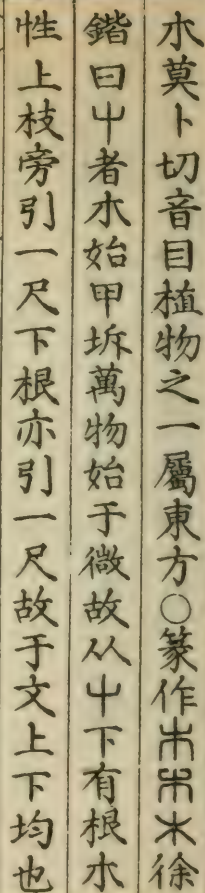 木莫卜切音目植物之一屬東方○篆作𣎳𣎳木徐
鍇曰屮者木始甲坼萬物始于微故从屮下有根木
性上枝旁引一尺下根亦引一尺故于文上下均也